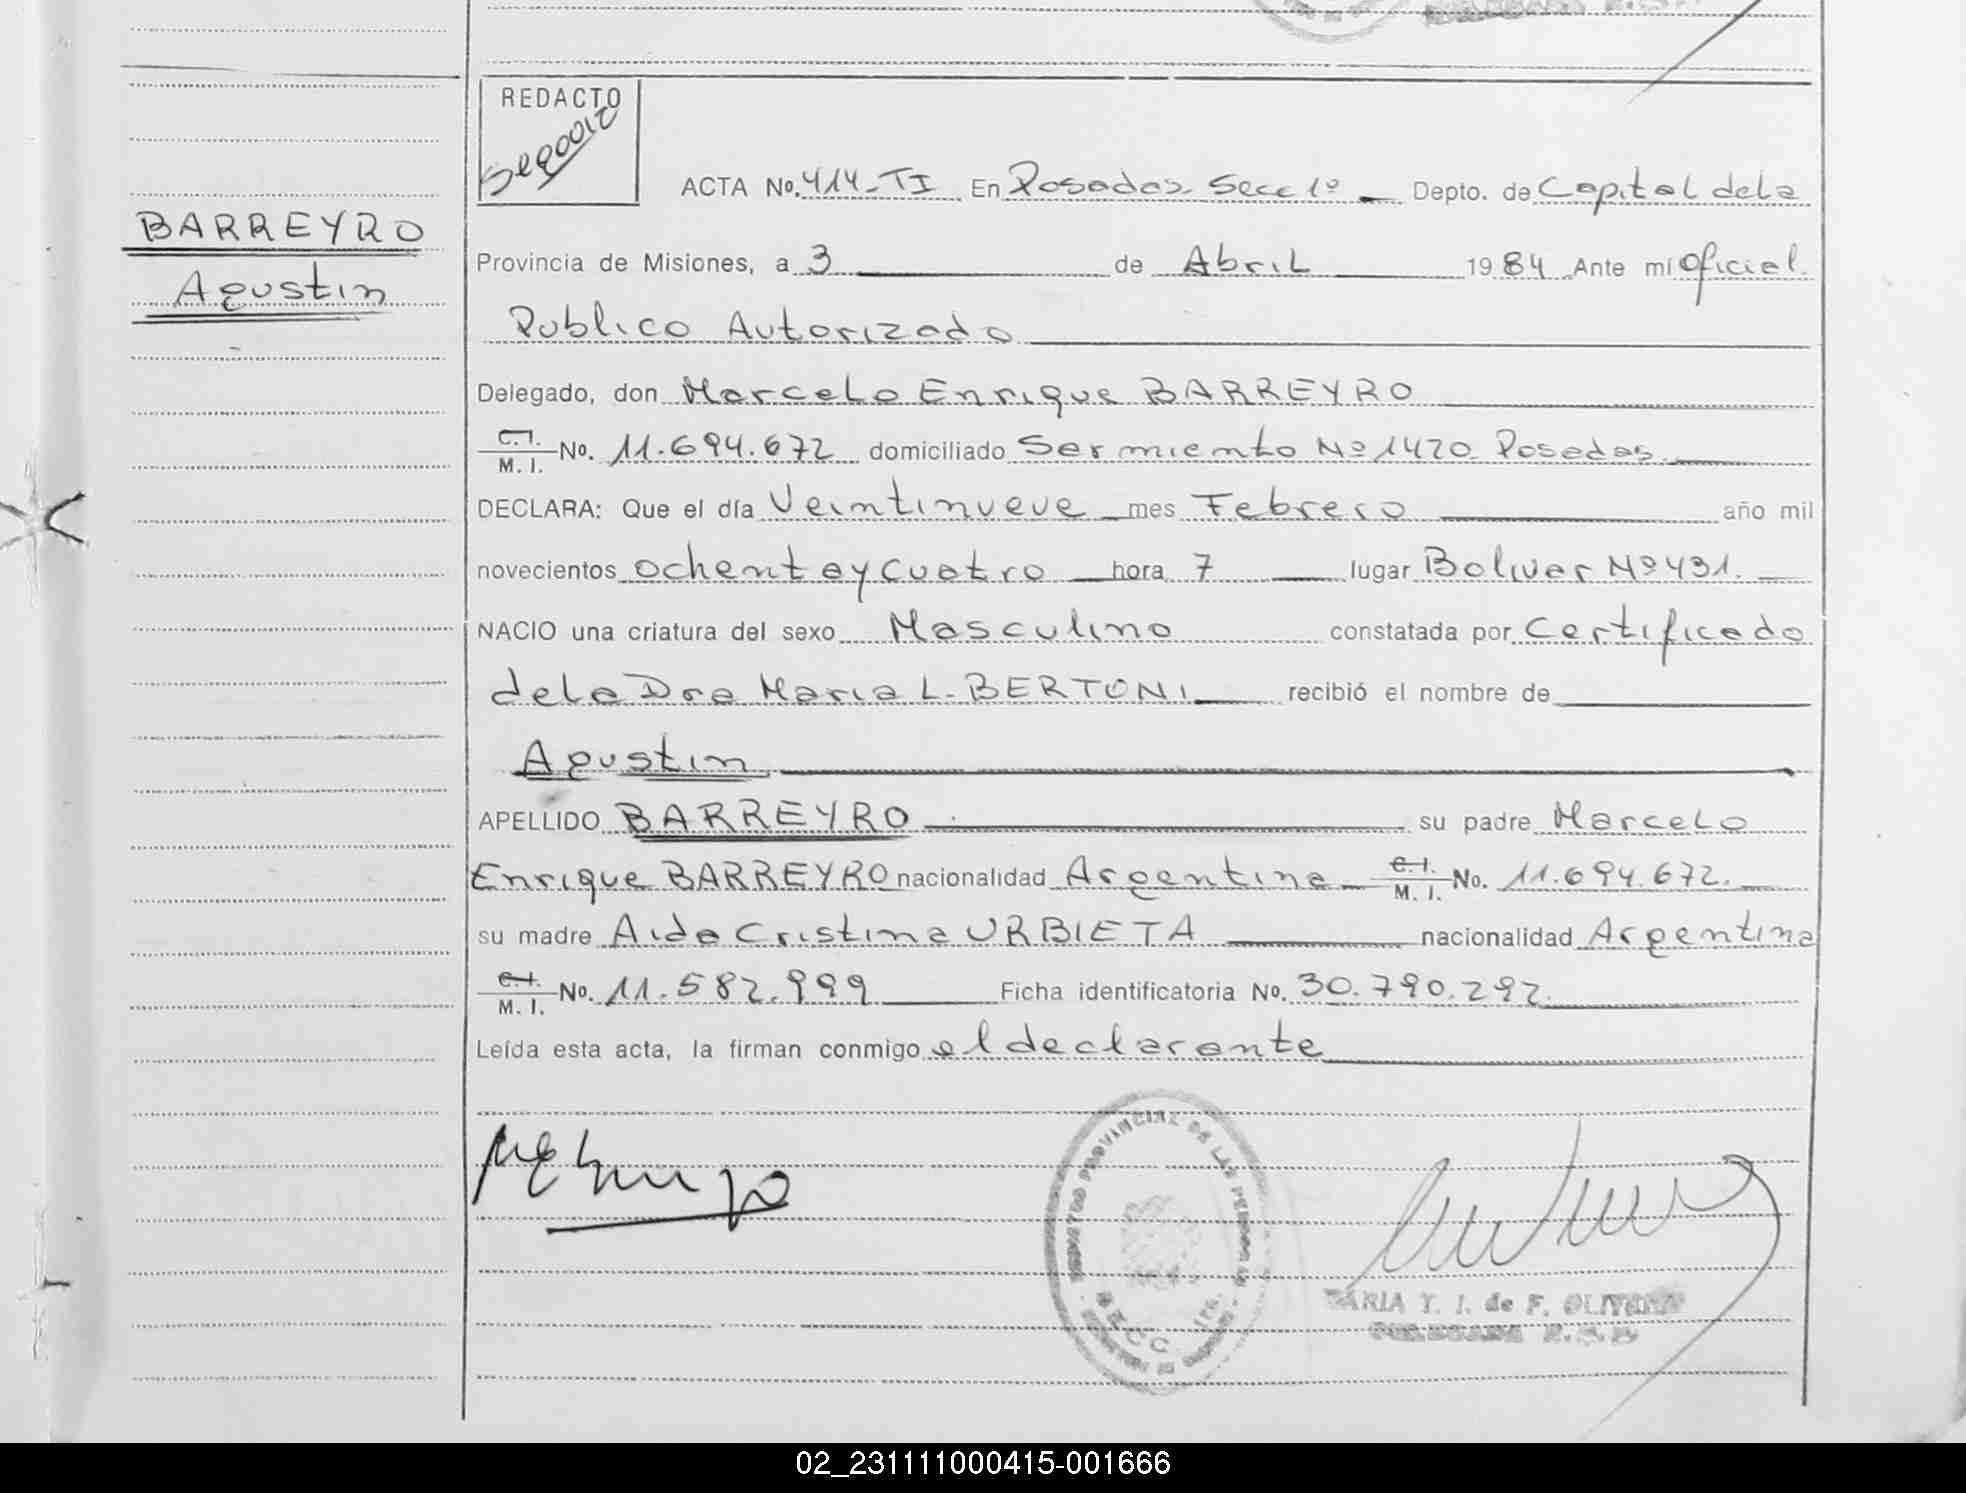 REDACTO
ACTA No. 414-TI En Posadas Secc 1º Depto. de Capital de la
BARREYRO
Agustin
Provincia de Misiones, a 3 de Abril 1984 Ante mi Oficial
Publico Autorizado
Delegado, don Marcelo Enrique BARREYRO
C.I. M. I. No. 11.694.672 domiciliado Sarmiento Nº 1420 Posadas
DECLARA: Que el día Veintinueve mes Febrero año mil
novecientos ochenta y cuatro hora 7 lugar Bolivar Nº 431.
NACIO una criatura del sexo Masculino constatada por Certificado
de la Dra Maria L. BERTONI recibió el nombre de
Agustin
APELLIDO BARREYRO su padre Marcelo
Enrique BARREYRO nacionalidad Argentina C.I. M. I. No. 11.694.672.
su madre Aida Cristina URBIETA nacionalidad Argentina
C.I. M. I. No. 11.582.999 Ficha identificatoria No. 30.790.292
Leída esta acta, la firman conmigo el declarante
REGISTRO PROVINCIAL DE LAS PERSONAS
MARIA Y. I. de F. OLIVERA
DELEGADA R.
02_231111000415-001666